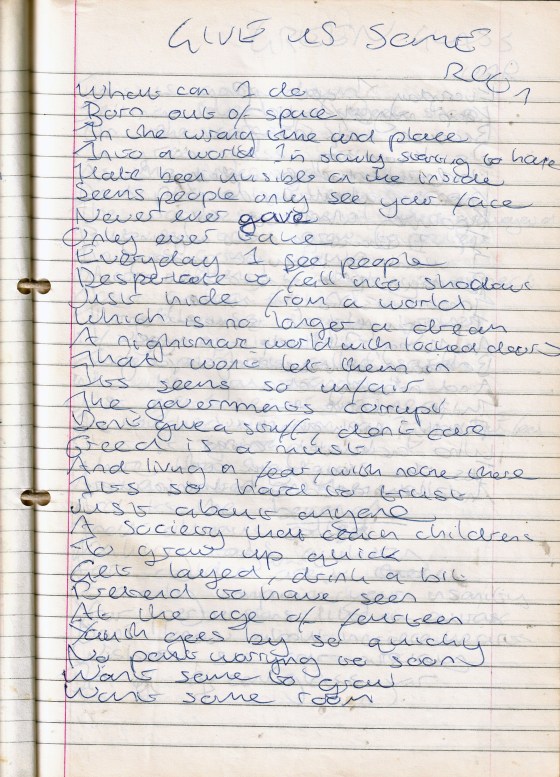 GIVE US SOME
ROO
1
What can I do
Born out of space
In the wrong time and place
Into a world I'm slowly starting to hate
Hate been invisible on the inside
Seems people only see your face
Never ever gave
Only ever take
Everyday I see people
Desperate to fall into shadows
Just hide from a world
Which is no longer a dream
A nightmare world with locked doors
That wont let them in
Its seems so unfair
The governments corrupt
Dont give a stuff, dont care
Greed is a must
And living a fear, with no one there
Its so hard to trust
Just about anyone
A society that teach childrens
To grow up quick
Get layed, drink a bit
Pretend to have seen
At the age of fourteen
Youth goes by so quickly
No point worrying to soon
Want some to grow
Want some room